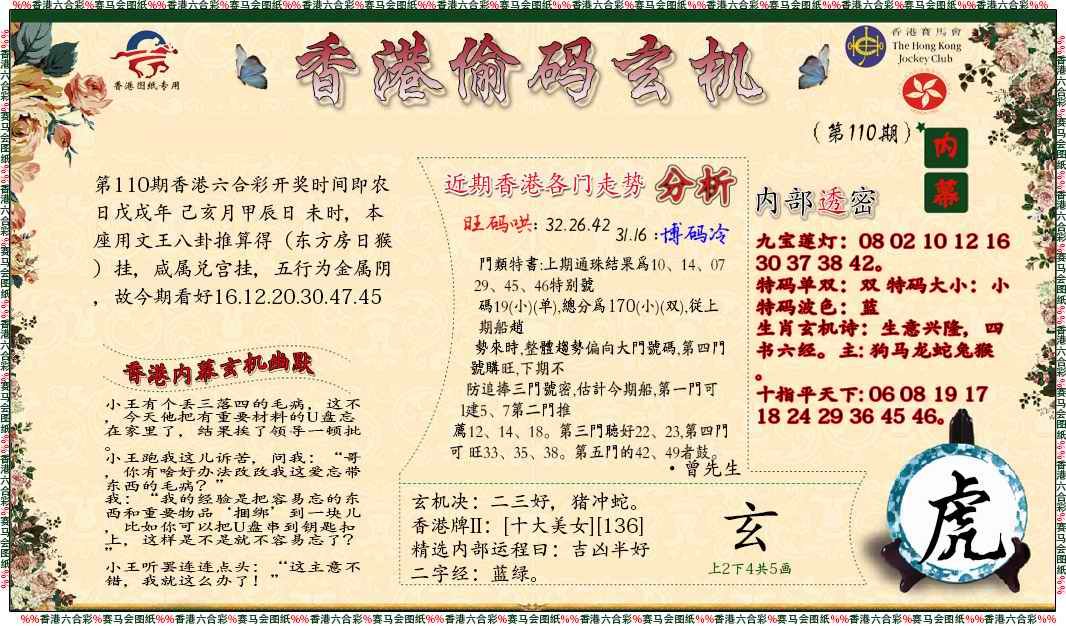 %%香港六合彩%赛马会图纸%%香港六合彩%赛马会图纸%%香港六合彩%赛马会图纸%%香港六合彩%赛马会图纸%%香港六合彩%赛马会图纸%%香港六合彩%赛马会图纸%%香港六合彩%%
香港图纸专用
香港偷码玄机
香港賽馬會
The Hong Kong
Jockey Club
(第110期)
内
幕
第110期香港六合彩开奖时间即农
日戊戌年 己亥月甲辰日 未时，本
座用文王八卦推算得（东方房日猴
）挂，咸属兑宫挂，五行为金属阴
，故今期看好16.12.20.30.47.45
香港内幕玄机幽默
小王有个丢三落四的毛病，这不
，今天他把有重要材料的U盘忘
在家里了，结果挨了领导一顿批
。
小王跑我这儿诉苦，问我：“哥
，你有啥好办法改改我这爱忘带
东西的毛病？”
我：“我的经验是把容易忘的东
西和重要物品‘捆绑’到一块儿
，比如你可以把U盘串到钥匙扣
上，这样是不是就不容易忘了？
”
小王听罢连连点头：“这主意不
错，我就这么办了！”
近期香港各门走势 分析
旺码哄: 32.26.42
31.16 :博码冷
門類特書:上期通珠結果爲10、14、07
29、45、46特别號
碼19(小)(单),總分爲170(小)(双),從上
期船趙
勢來時,整體趨勢偏向大門號碼,第四門
號購旺,下期不
防追捧三門號密,估計今期船,第一門可
1建5、7第二門推
薦12、14、18。第三門聽好22、23,第四門
可 旺33、35、38。第五門的42、49者鼓。
·曾先生
玄机决：二三好，猪冲蛇。
香港牌II：[十大美女][136]
精选内部运程日：吉凶半好
二字经：蓝绿。
玄
上2下4共5画
内部透密
九宝莲灯：08 02 10 12 16
30 37 38 42。
特码单双：双 特码大小：小
特码波色：蓝
生肖玄机诗：生意兴隆，四
书六经。主: 狗马龙蛇兔猴
。
十指平天下: 06 08 19 17
18 24 29 36 45 46。
虎
%%香港六合彩%赛马会图纸%%香港六合彩%赛马会图纸%%香港六合彩%赛马会图纸%%香港六合彩%赛马会图纸%%香港六合彩%赛马会图纸%%香港六合彩%赛马会图纸%%香港六合彩%%